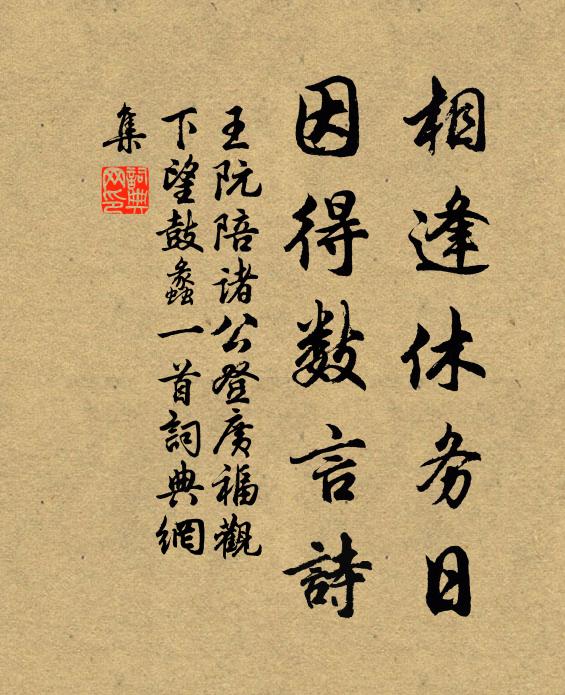 相逢休务日
因得数言詩
王阮陪诸公登廣福觀
下望鼓蠡一首詞典網
集
詞典
网印